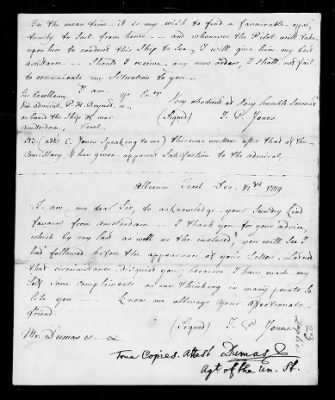 In the mean time - it is my wish to find a favourable oppor-
tunity to Sail from hence - and whenever the Pilot will take
upon him to conduct this Ship to Sea, I will give him my best
assistance. - Should I receive any new orders, I shall not fail
to communicate my Situation to you. -
I am
Excellency
Vice admiral P. H. Reynst
on board the Ship of war
Amsterdam Texel
Very obedient & Very humble Servant
(Signed) J. P. Jones
(adds C. Jones Speaking to me) this was written after that of the
Commissary & has given apparent Satisfaction to the admiral.
Alliance Texel Dec. 1779
I am, my dear Sir, to acknowledge your Sundry kind
favours from Amsterdam. I thank you for your advice,
which by my last as well as the enclosed, you will See I
had followed before the appearance of your Letter. Let not
that circumstance disgust you, because I have made my
Self Some compliments on our thinking in many points so
like you - Know me allways Your affectionate
friend
(Signed) J. P. Jones
Mr. Dumas &
True Copies. attest Dumas
Agt. of the Un. St.